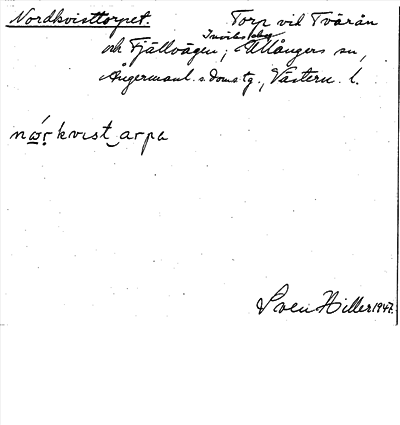 Nordkvisttorpet. Torp vid Tvärån
och Fjällvägen, Ullångers sn,
Ångermanl. s. domstg., Västern. l.
nώ̲r̥kvist‿arpa
Sven Hiller 1947.